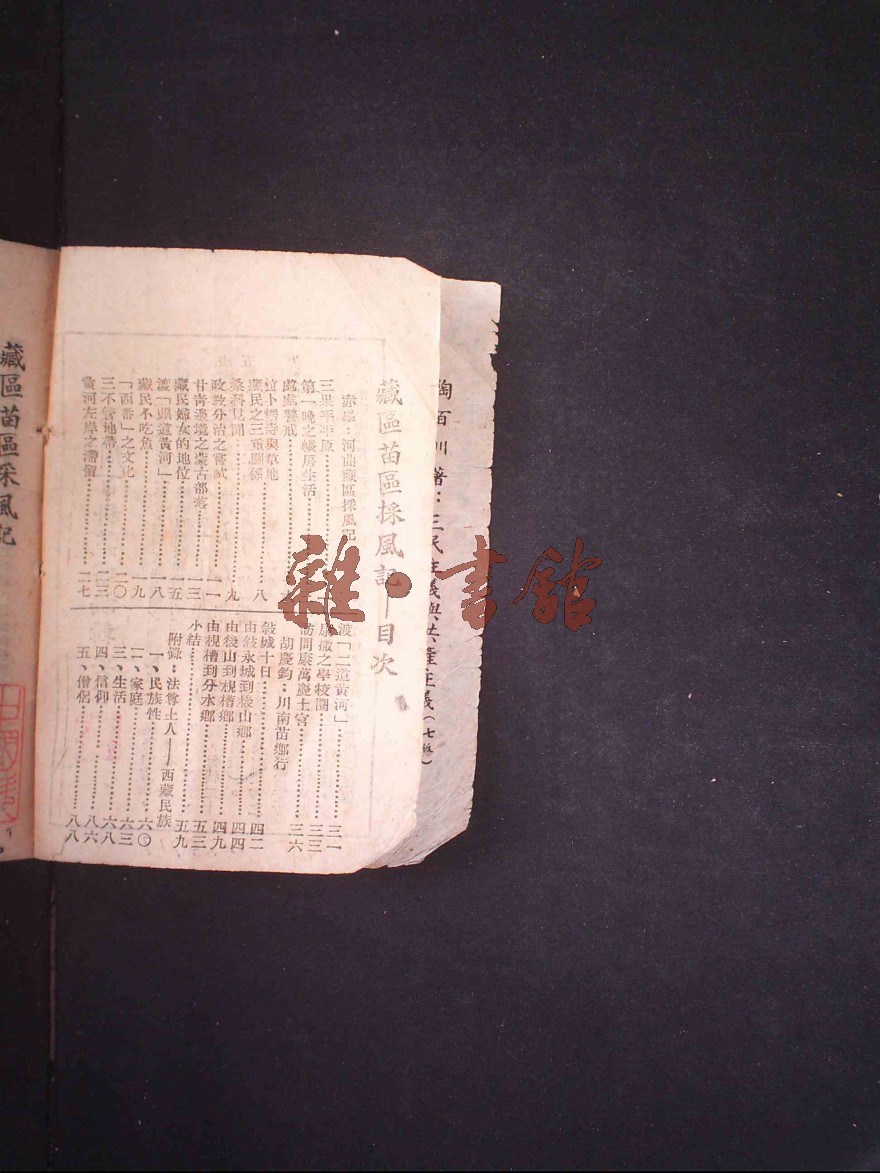 藏區苗區採風記——目次
河曲藏區採風記
三果平原
第一晚之帳房生活
處處警戒
拉卜楞寺與草地……八
藏民之三重關係
桑科見聞……九
政教分治之嘗試……一一
甘青邊境之蒙古部落……一三
藏民婦女的地位……一五
渡「頭道黃河」……一八
藏民不吃魚……一九
「西番」之文化……二〇
三不管地帶……二三
黃河左岸之滯留……二七
渡「二道黃河」……三一
之學校關……三三
訪問康萬慶土官……三六
胡慶鈞：川南苗鄉行
敍城十日……四二
由敍永城到後山鄉……四四
由後山到梘槽鄉……四九
由梘槽到分水鄉……五三
小結……五九
附錄：法尊上人——西藏民族
一、民族性……六〇
二、家庭……六三
三、生活……六八
四、信仰……八六
五、僧侶……八八
陶百川著：三民主義與共產主義（七版）
藏區苗區採風記
雜·書館